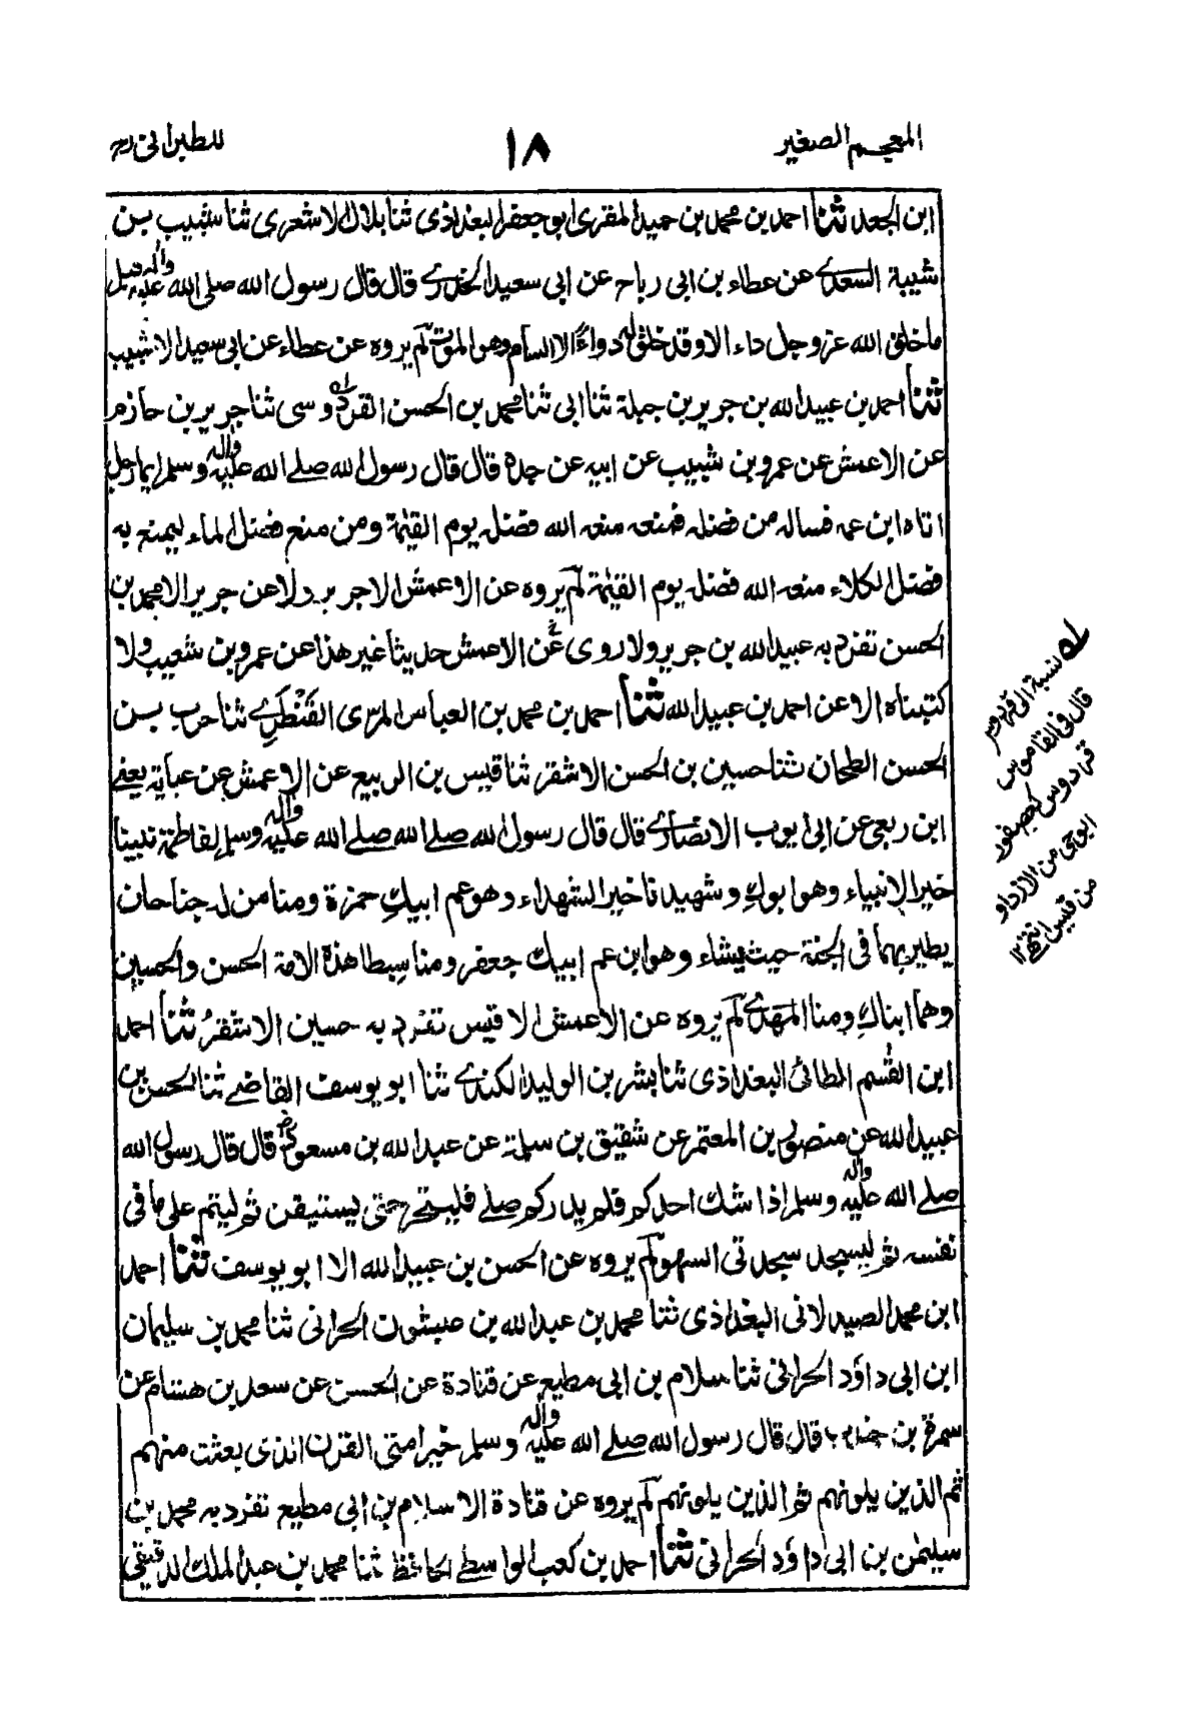 المعجم الصغير
١٨
للطبرانى رح
ابن الجعد ثنا احمد بن محمد بن حميد المقرى ابو جعفر البغداذى ثنا بلال الاشعرى ثنا شبيب بن
شيبة السعدے عن عطاء بن ابى رباح عن ابى سعيد الخدرے قال قال رسول الله صلى الله عليه واٰله وسلم
ما خلق الله عز وجل داء الا وقد خلق له دواءً الا السام وهو الموت لم يروه عن عطاء عن ابى سعيد الا شبيب
ثنا احمد بن عبيد الله بن جرير بن جبلة ثنا ابى ثنا محمد بن الحسن القردوسى ثنا جرير بن حازم
عن الاعمش عن عمرو بن شعيب عن ابيه عن جده قال قال رسول الله صلے الله عليه واٰله وسلم ايما رجل
اتاه ابن عمه فساله من فضله فمنعه منعه الله فضله يوم القيٰمة ومن منع فضل الماء ليمنع به
فضل الكلاء منعه الله فضله يوم القيٰمة لم يروه عن الاعمش الا جرير ولا عن جرير الا محمد بن
الحسن تفرد به عبيد الله بن جرير ولا روى عن الاعمش حديثا غير هذا عن عمرو بن شعيب ولا
كتبناه الا عن احمد بن عبيد الله ثنا احمد بن محمد بن العباس المرى القَنْطَرِے ثنا حرب بن
الحسن الطحان ثنا حسين بن الحسن الاشقر ثنا قيس بن الربيع عن الاعمش عن عباية يعنے
ابن ربعى عن ابى ايوب الانصارے قال قال رسول الله صلے الله صلے الله عليه واٰله وسلم لفاطمة نبينا
خير الانبياء وهو ابوكِ وشهيدنا خير الشهداء وهو عم ابيكِ حمزة ومنا من له جناحان
يطير بهما فى الجنة حيث يشاء وهو ابن عم ابيك جعفر ومنا سبطا هذه الامة الحسن والحسين
وهما ابناكِ ومنا المهدے لم يروه عن الاعمش الا قيس تفرد به حسين الاشقر ثنا احمد
ابن القٰسم الطائى البغداذى ثنا بشر بن الوليد الكندے ثنا ابو يوسف القاضے ثنا الحسن بن
عبيد الله عن منصور بن المعتمر عن شقيق بن سلمة عن عبد الله بن مسعود رض قال قال رسول الله
صلے الله عليه واٰله وسلم اذا شك احدكم فلم يدر كم صلے فليتحر حتى يستيقن ثم ليتم على ما فى
نفسه ثم ليسجد سجدتى السهو لم يروه عن الحسن بن عبيد الله الا ابو يوسف ثنا احمد
ابن محمد الصيدلانى البغداذى ثنا محمد بن عبد الله بن ميثون الحرانى ثنا محمد بن سليمان
ابن ابى داؤد الحرانى ثنا سلام بن ابى مطيع عن قتادة عن الحسن عن سعد بن هشام عن
سمرة بن جندب قال قال رسول الله صلے الله عليه واٰله وسلم خير امتى القرن الذى بعثت منهم
ثم الذين يلونهم ثم الذين يلونهم لم يروه عن قتادة الا سلام بن ابى مطيع تفرد به محمد بن
سليمٰن بن ابى داؤد الحرانى ثنا احمد بن كعب الواسطے الحافظ ثنا محمد بن عبد الملك الدقيقى
له نسبة الى قردوس
قال فى القاموس
قردوس كعصفور
ابو حى من الازد او
من قيس انتهے ١٢